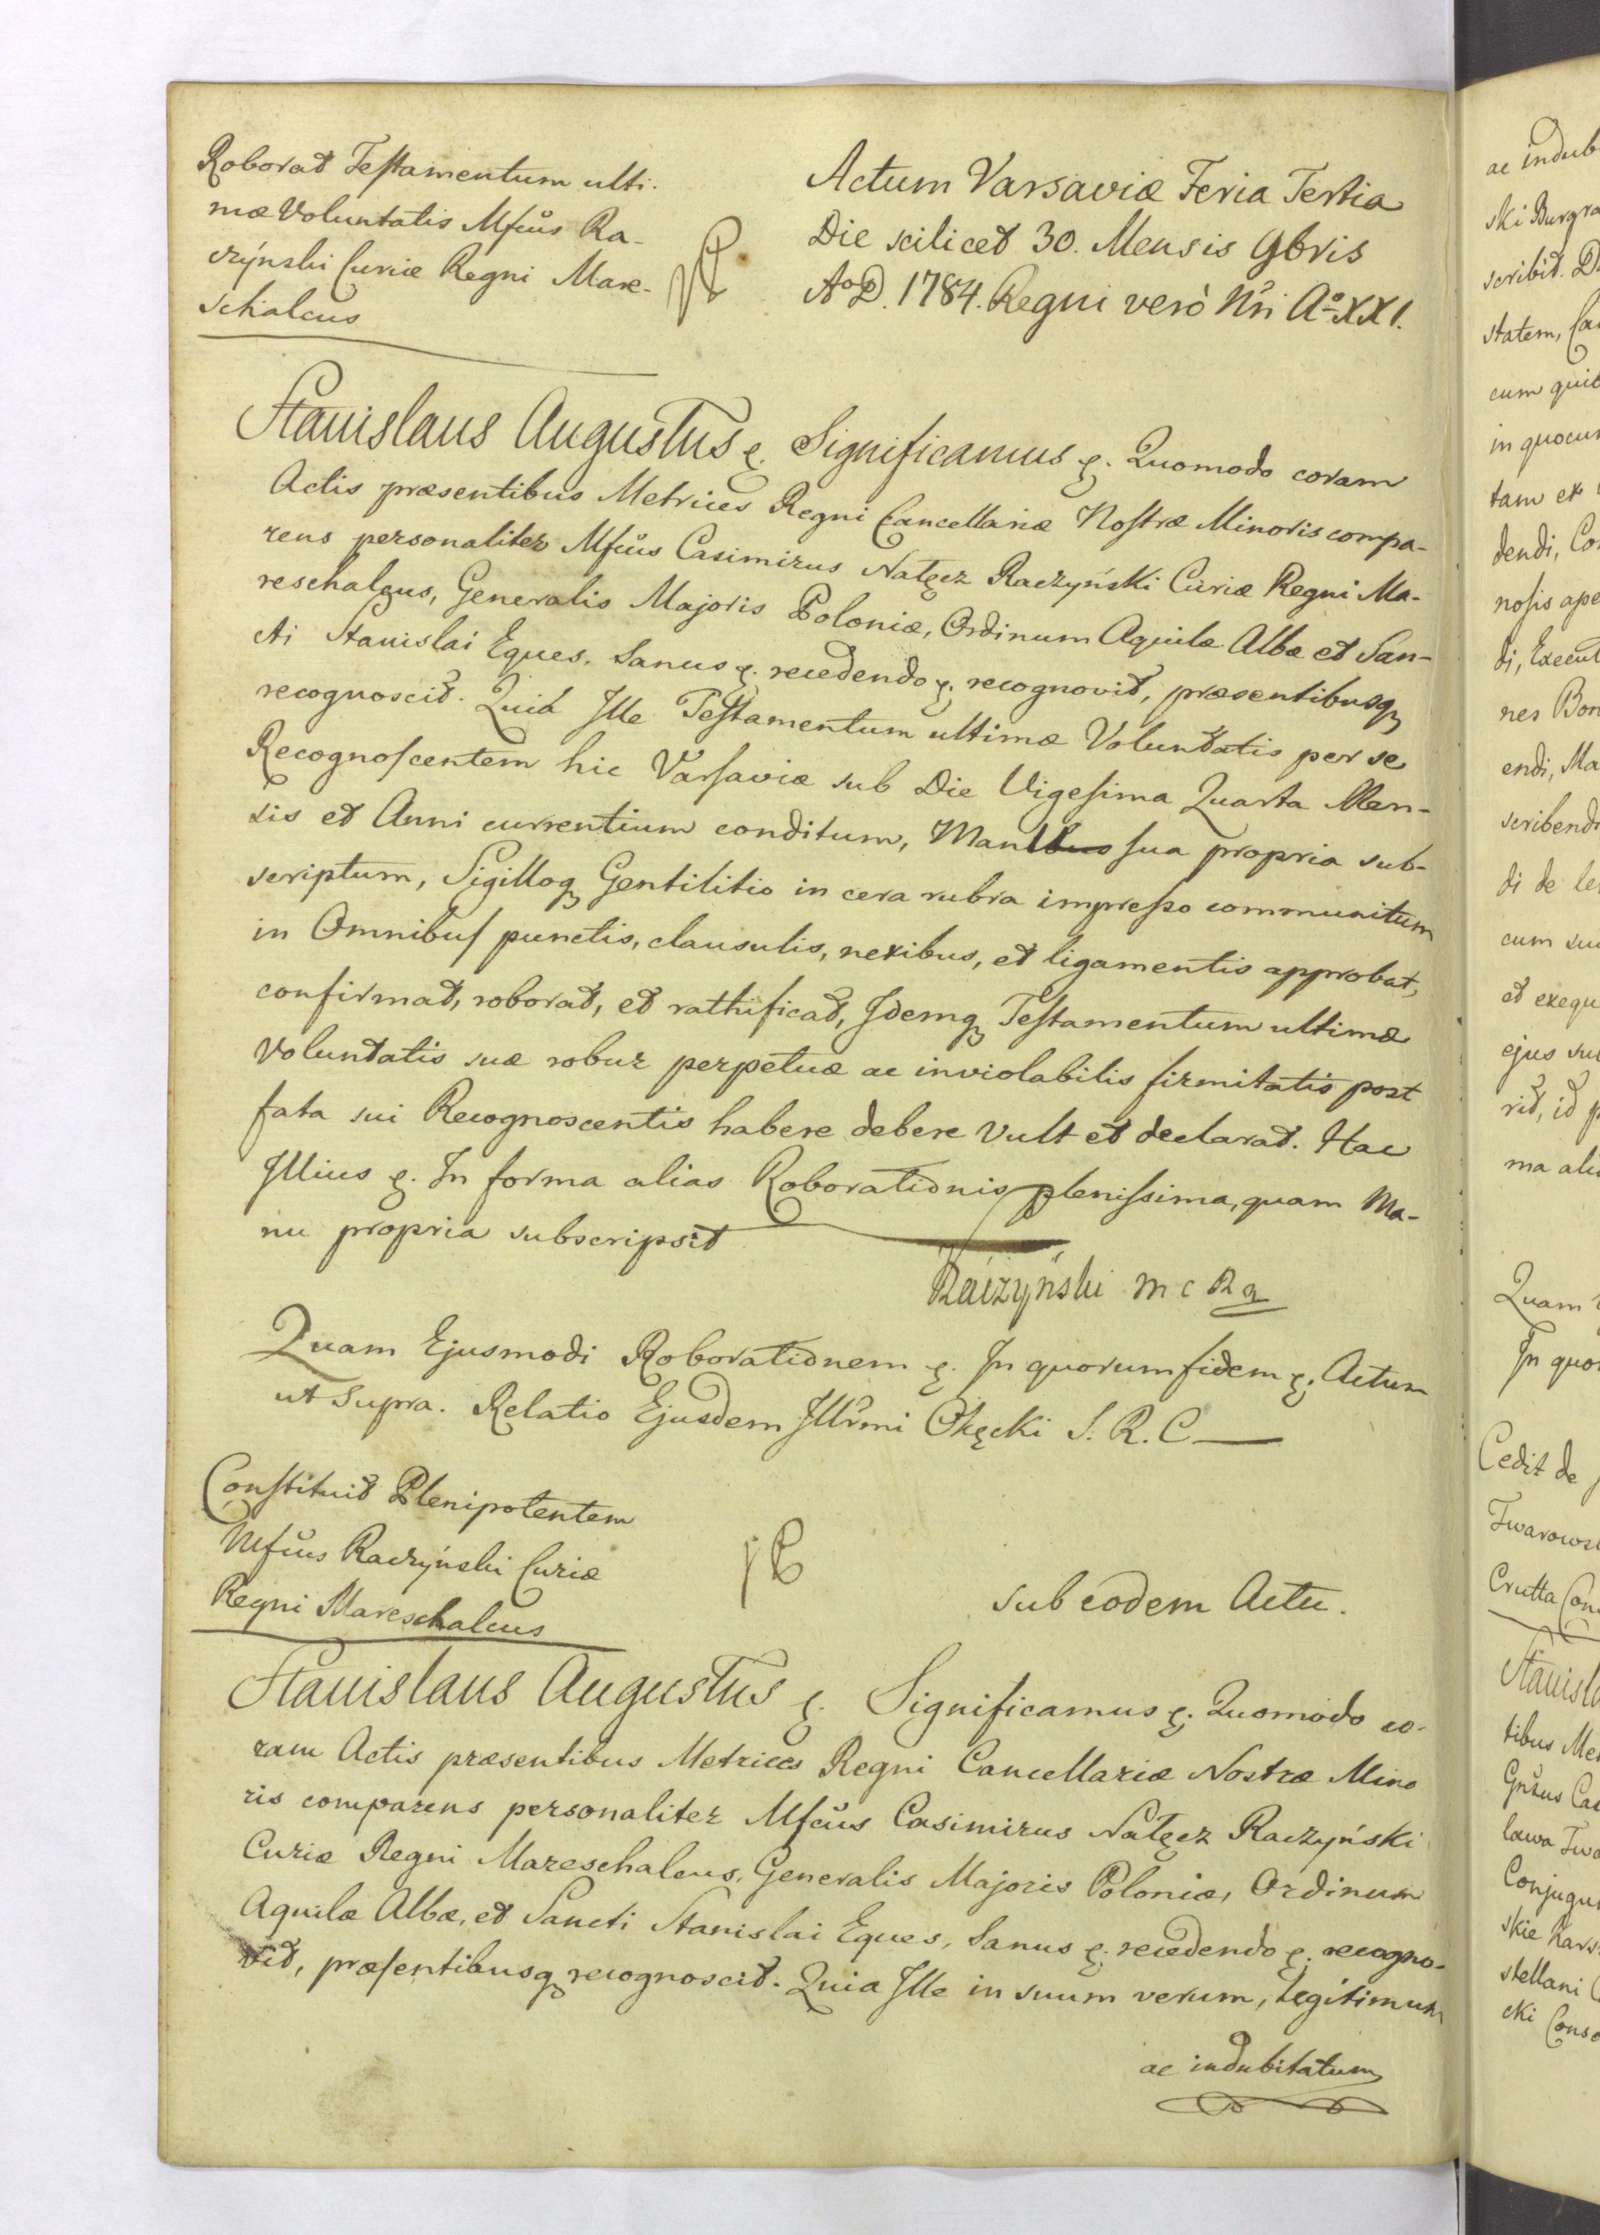 Roborat Testamentum ulti-
mæ Voluntatis Mfcus Ra-
czýnski Curiæ Regni Mare-
schalcus
Actum Varsaviæ Feria Tertia
Die scilicet 30. Mensis 9bris
Aº D. 1784. Regni verò Nri Aº XXI.
Stanislaus Augustus &. Significamus &. Quomodo coram
Actis præsentibus Metrices Regni Cancellariæ Nostræ Minoris compa-
rens personaliter Mfcus Casimirus Nałęcz Raczyński Curiæ Regni Ma-
reschalcus, Generalis Majoris Poloniæ, Ordinum Aquilæ Albæ et San-
cti Stanislai Eques. Sanus &. recedendo &. recognovit, præsentibusq
recognoscit. Quia Ille Testamentum ultimæ Voluntatis per se
Recognoscentem hic Varsaviæ sub Die Vigesima Quarta Men-
sis et Anni currentium conditum, Manu sua propria sub-
scriptum, Sigilloq Gentilitio in cera rubra impresso communitum
in Omnibus punctis, clausulis, nexibus, et ligamentis approbat,
confirmat, roborat, et rattificat, Idemq Testamentum ultimæ
Voluntatis suæ robur perpetuæ ac inviolabilis firmitatis post
fata sui Recognoscentis habere debere vult et declarat. Hac
Illius &. In forma alias Roborationis plenissima, quam Ma-
nu propria subscripsit
Raczyński m c R
Quam Ejusmodi Roborationem &. In quorum fidem &. Actum
ut Supra. Relatio Ejusdem Illrmi Okęcki S. R. C.
Constituit Plenipotentem
Mfcus Raczyński Curiæ
Regni Mareschalcus
sub eodem Actu.
Stanislaus Augustus &. Significamus &. Quomodo co-
ram Actis præsentibus Metrices Regni Cancellariæ Nostræ Mino
ris comparens personaliter Mfcus Casimirus Nałęcz Raczyński
Curiæ Regni Mareschalcus, Generalis Majoris Poloniæ, Ordinum
Aquilæ Albæ, et Sancti Stanislai Eques, Sanus &. recedendo &. recogno-
vit, præsentibusq recognoscit. Quia Ille in suum verum, legitimum
ac indubitatum
ac indub
ski Burgra
scribit.
statem,
cum quit
in quocun
tam ex
dendi,
nosis ape
di, Execut
nes Bon
endi, Ma
scribend
di de le
cum su
et exequ
ejus su
rit, id
ma ali
Quam
In quo
Cedit de
Twarows
Crutta Con
Stanisl
tibus Me
Gnrsus Ca
lawa Twa
Conjugu
skie
stellani
cki Conso